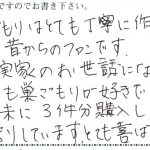 ですのでお書き下さい。
もりはとても丁寧に作
昔からのファンです.
実家のお世話に
も巣ごもりが好きで
未に3件分購入し
していますとても喜ば